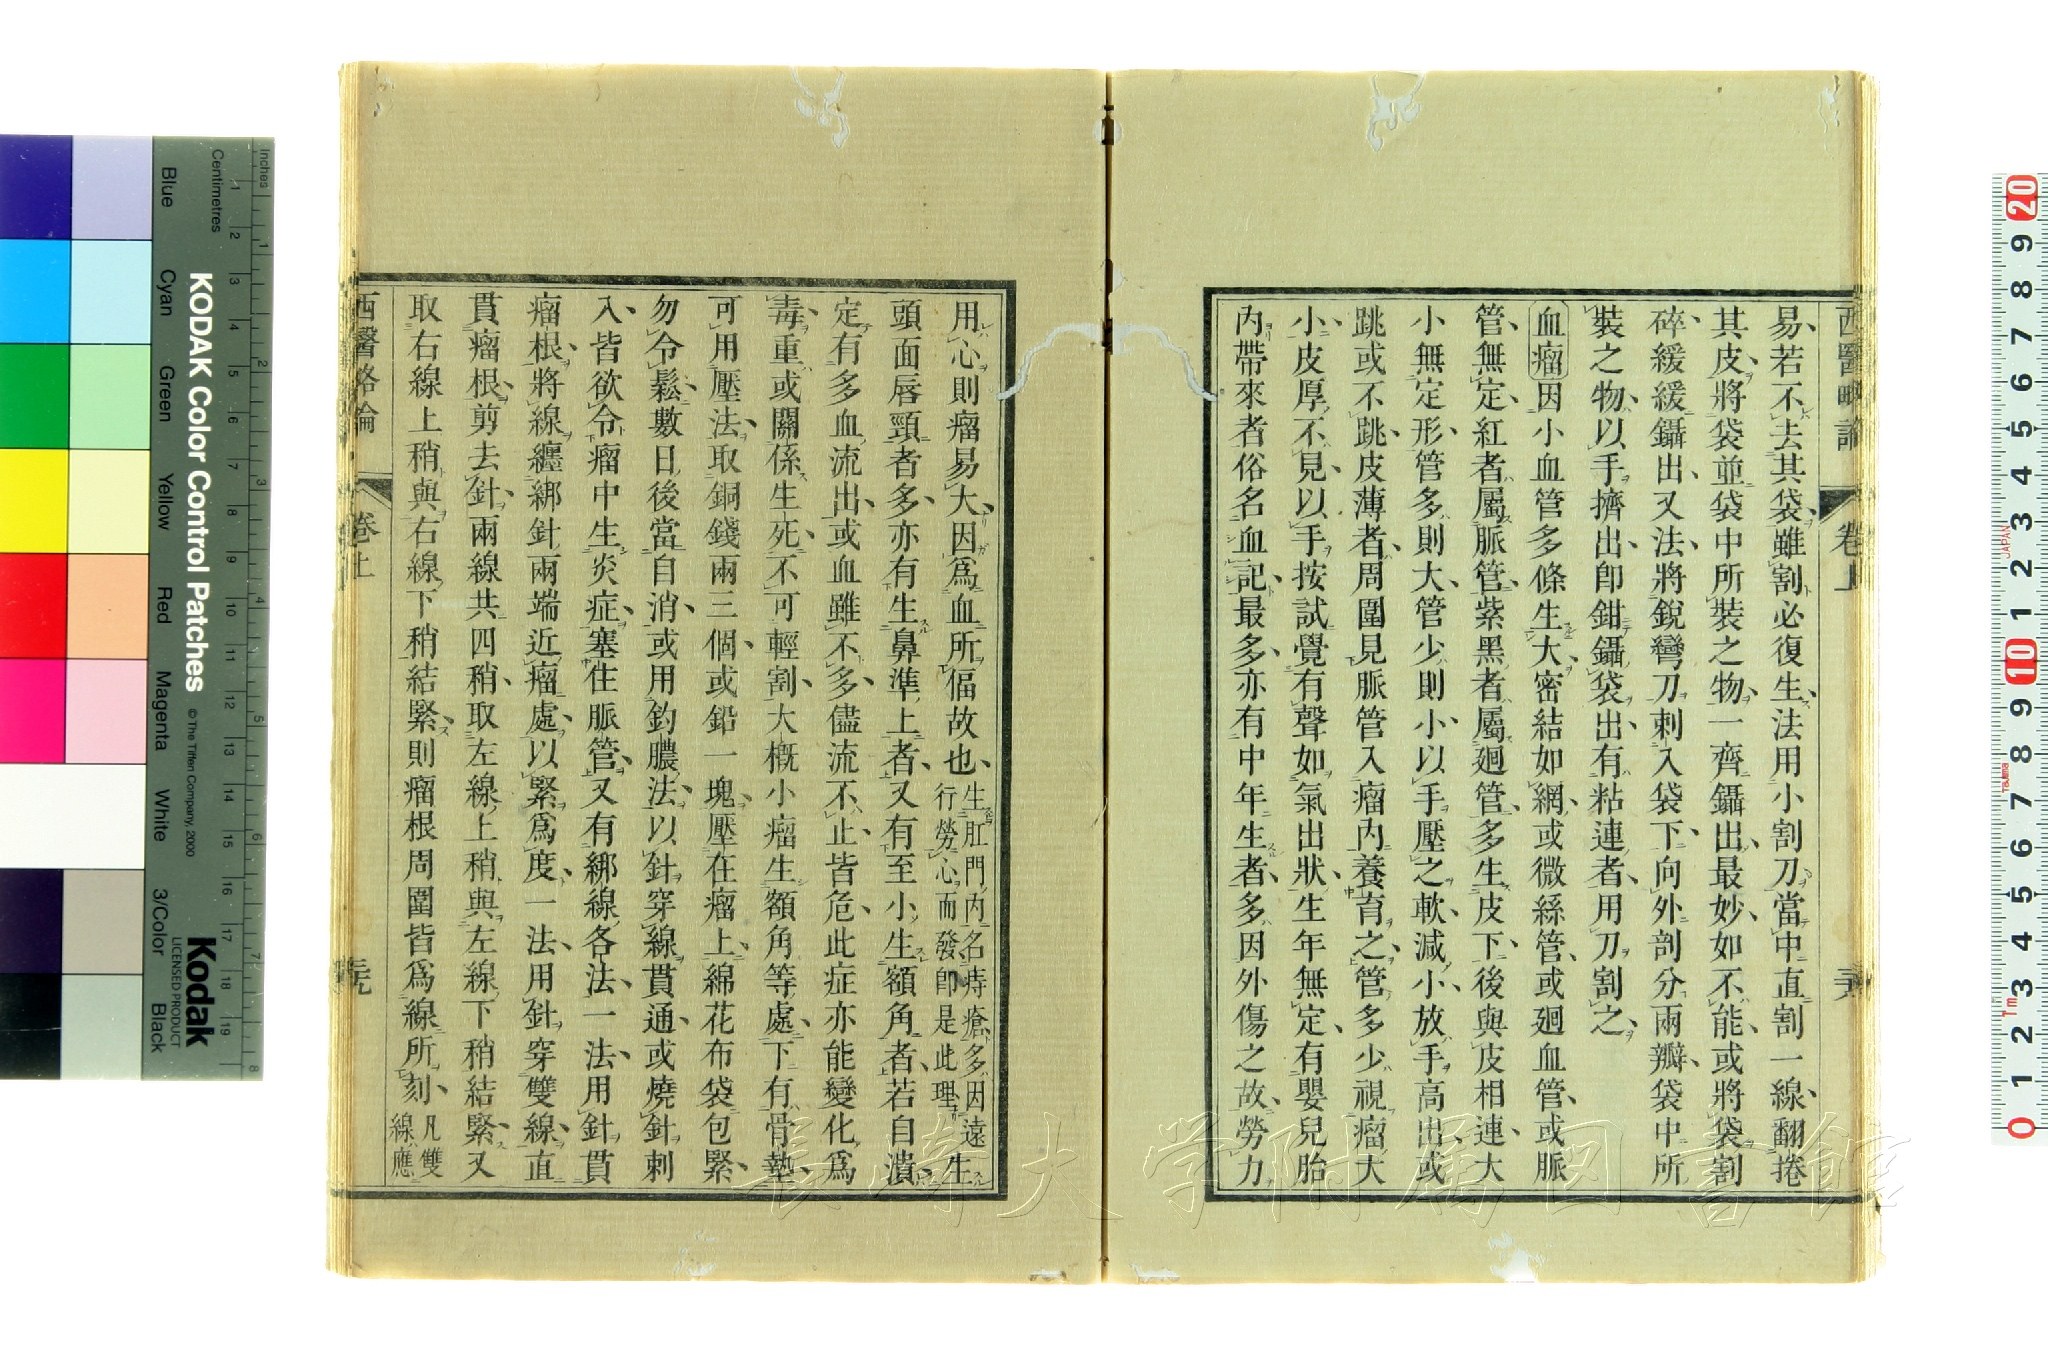 西醫略論
卷上
易若不去其袋雖割必復生法用小割刀當中直割一線翻捲
其皮將袋並袋中所裝之物一齊鑷出最妙如不能或將袋割
碎緩緩鑷出又法將銳彎刀刺入袋下向外剖分兩瓣袋中所
裝之物以手擠出卽鉗鑷袋出有粘連者用刀割之
血瘤因小血管多條生大密結如網或微絲管或廻血管或脈
管無定紅者屬脈管紫黑者屬廻管多生皮下後與皮相連大
小無定形管多則大管少則小以手壓之軟減小放手高出或
跳或不跳皮薄者周圍見脈管入瘤內養育之管多少視瘤大
小皮厚不見以手按試覺有聲如氣出狀生年無定有嬰兒胎
內帶來者俗名血記最多亦有中年生者多因外傷之故勞力
用心則瘤易大因爲血所偪故也生肛門內名痔瘡多因遠行勞心而發卽是此理生
頭面唇頸者多亦有生鼻準上者又有至小生額角者若自潰
定有多血流出或血雖不多儘流不止皆危此症亦能變化爲
毒重或關係生死不可輕割大概小瘤生額角等處下有骨墊
可用壓法取銅錢兩三個或鉛一塊壓在瘤上綿花布袋包緊
勿令鬆數日後當自消或用釣膿法以針穿線貫通或燒針刺
入皆欲令瘤中生炎症塞住脈管又有綁線各法一法用針貫
瘤根將線纏綁針兩端近瘤處以緊爲度一法用針穿雙線直
貫瘤根剪去針兩線共四稍取左線上稍與左線下稍結緊又
取右線上稍與右線下稍結緊則瘤根周圍皆爲線所刻凡雙線應
西醫略論
卷上
長崎大学附属図書館
KODAK Color Control Patches
© The Tiffen Company, 2000
Kodak
LICENSED PRODUCT
Inches
Centimetres
Blue
Cyan
Green
Yellow
Red
Magenta
White
3/Color
Black
JAPAN